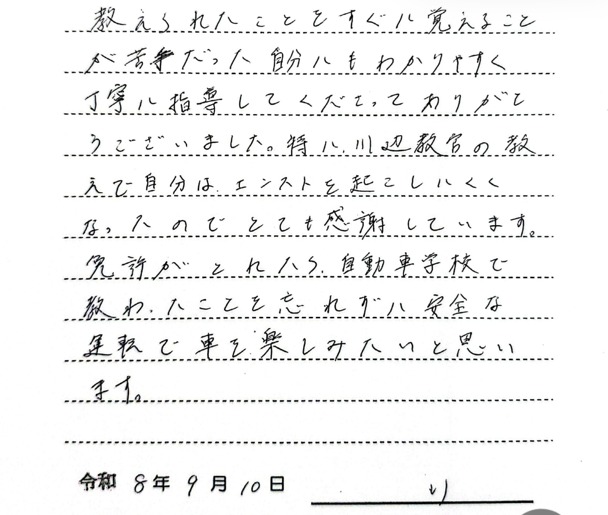 教えられたことをすぐに覚えること
が苦手だった自分にもわかりやすく
丁寧に指導してくださってありがと
うございました。特に、川辺教官の教
えで自分は、エンストを起こしにくく
なったのでとても感謝しています。
免許がとれたら、自動車学校で
教わったことを忘れずに安全な
運転で車を楽しみたいと思い
ます。
令和 8年 9月 10日 より